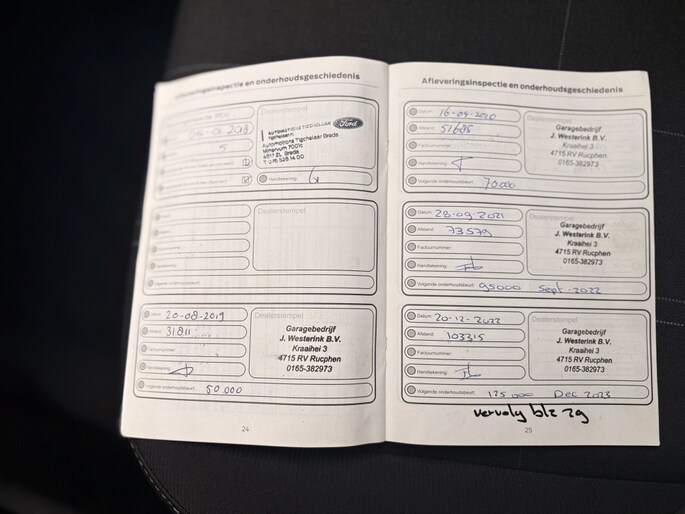 Afleveringsinspectie en onderhoudsgeschiedenis
5
Dealerstempel
AUTOMOTIONS TIGCHELAAR
Ford
Automotions Tigchelaar Breda
Minervum 7001c
4817 ZL Breda
Handtekening:
Datum:
Afstand:
Factuurnummer:
Handtekening:
Volgende onderhoudsbeurt:
Dealerstempel
Datum: 20-08-2019
Afstand: 31811
Factuurnummer:
Handtekening:
Volgende onderhoudsbeurt: 50.000
Dealerstempel
Garagebedrijf
J. Westerink B.V.
Kraaihei 3
4715 RV Rucphen
0165-382973
24
Afleveringsinspectie en onderhoudsgeschiedenis
Datum: 16-09-2020
Afstand: 51685
Factuurnummer:
Handtekening:
Volgende onderhoudsbeurt: 70000
Garagebedrijf
J. Westerink B.V.
Kraaihei 3
4715 RV Rucphen
0165-382973
Datum: 28-09-2021
Afstand: 73579
Factuurnummer:
Handtekening:
Volgende onderhoudsbeurt: 95000 Sept-2022
Dealerstempel
Garagebedrijf
J. Westerink B.V.
Kraaihei 3
4715 RV Rucphen
0165-382973
Datum: 20-12-2022
Afstand: 103315
Factuurnummer:
Handtekening:
Volgende onderhoudsbeurt: 125 000 Dec 2023
Dealerstempel
Garagebedrijf
J. Westerink B.V.
Kraaihei 3
4715 RV Rucphen
0165-382973
vervolg blz 29
25